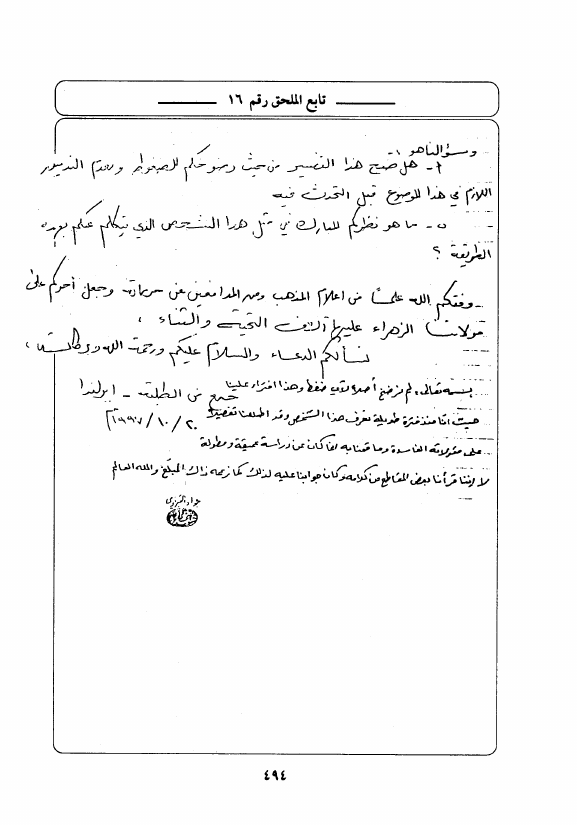 تابع الملحق رقم ١٦
وسؤالنا هو :-
أ- هل صحيح هذا التفسير من حيث رضوخكم للضغوط وعدم التدبر
اللازم في هذا الموضوع قبل التحدث فيه
ب- ما هو نظركم المبارك في مثل هذا الشخص الذي يتكلم عنكم بهذه
الطريقة ؟
وفقكم الله علمًا من اعلام المذهب ومن المدافعين عن حريمه وجعل أجركم على
مولاتنا الزهراء عليها آلاف التحية والثناء ،
نسألكم الدعاء والسلام عليكم ورحمة الله وبركاته ،
جمع من الطلبة - ايرلندا
٢٠/١٠/١٩٩٧م
بسمه تعالى، لم نرضخ أصلا لأي ضغط وهذا افتراء علينا
حيث انا منذ فترة طويلة نعرف هذا الشخص وقد اطلعنا تفصيلا
على مقولاته الفاسدة وما قمنا به إنما كان عن دراسة عميقة ومطولة
لا اننا قرأنا بعض المقاطع من كلامه وكان جوابنا عليه لذلك كما زعمه ذاك المبلّغ والله العالم
جواد التبريزي
٤٩٤